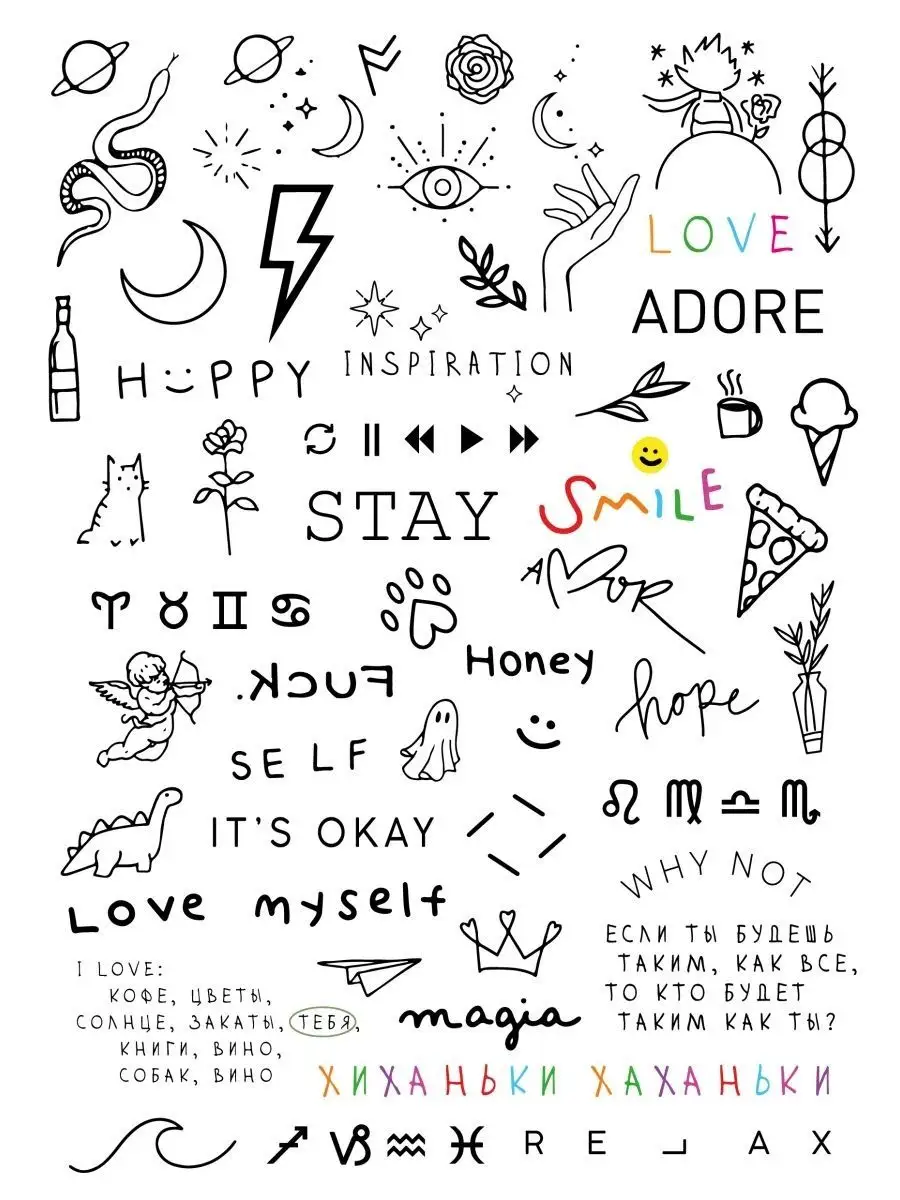 LOVE
ADORE
INSPIRATION
HAPPY
STAY
SMILE
AMOR
Honey
FUCK.
hope
SELF
IT'S OKAY
WHY NOT
Love myself
ЕСЛИ ТЫ БУДЕШЬ
ТАКИМ, КАК ВСЕ,
ТО КТО БУДЕТ
ТАКИМ КАК ТЫ?
I LOVE:
КОФЕ, ЦВЕТЫ,
СОЛНЦЕ, ЗАКАТЫ, ТЕБЯ,
КНИГИ, ВИНО,
СОБАК, ВИНО
magia
ХИХАНЬКИ ХАХАНЬКИ
RELAX